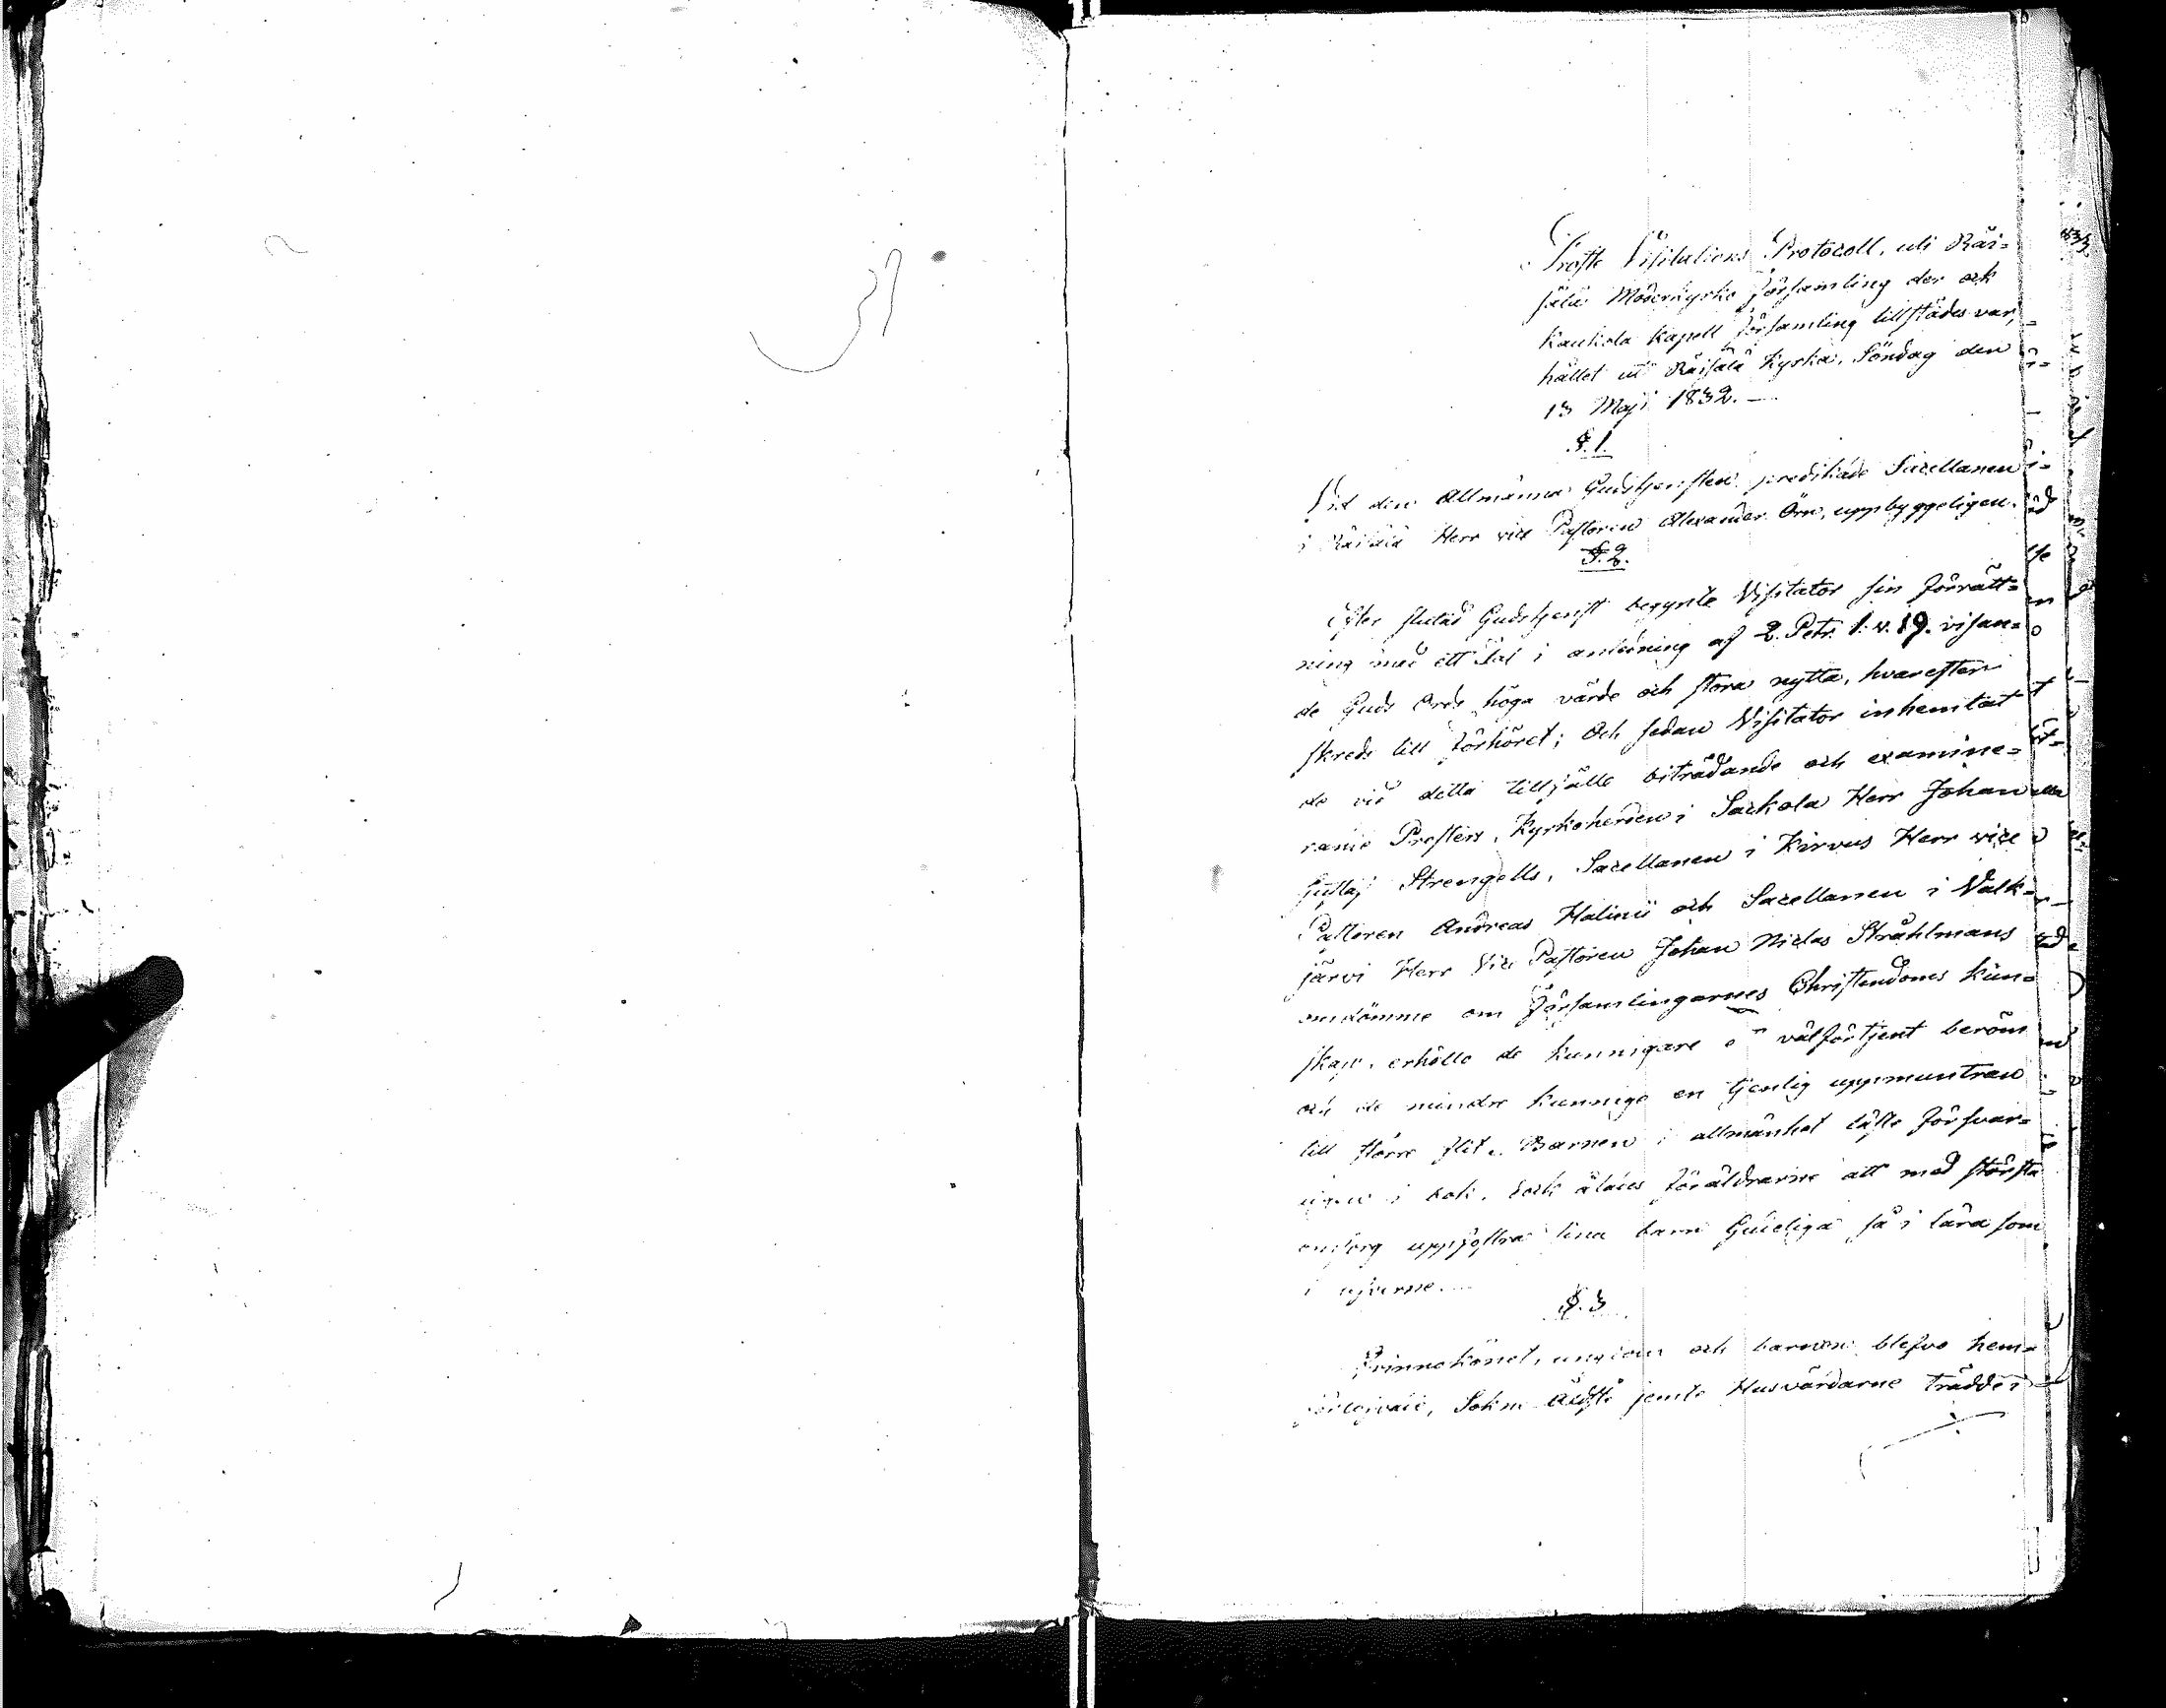 Profte Visitations Protocoll, uti Räi=
sälä Moderkyrko Församling der och
Kaukola Kapell Församling tillstädes var,
hållet uti Räisälä Kyrka, Söndag den
13 Maji 1832.
§. 1.
Vid den Allmänna Gudstjensten predikade Sacellanen
i Räisälä Herr vice Pastoren Alexander Örn, uppbyggeligen.
§. 2.
Efter slutad Gudstjenst begynte Visitator sin förrätt=
ning med ett Tal i anledning af 2. Petr. 1. v. 19. visan=
de Guds Ords höga värde och stora nytta, hvarefter
skreds till förhöret; Och sedan Visitator inhemtat
de vid detta tillfälle biträdande och examine=
rande Presters, Kyrkoherden i Sackola Herr Johan
Gustaf Strengells, Sacellanen i Kirvus Herr vice
Pastoren Andreas Halinii och Sacellanen i Valk=
järvi Herr Vice Pastoren Johan Niclas Stråhlmans
omdömme om Församlingarnes Christendoms kun=
skap, erhöllo de kunnigare välförtjent beröm
och de mindre kunnige en tjenlig uppmuntran
till större flit. Barnen i allmänhet läste försvar=
ligen i bok, dock ålades föräldrarne att med största
omsorg uppfostra sina barn Gudeliga så i lära som
i lefverne.
§. 3
Qvinnokönet, ungdom och barnen blefvo hem=
förlofvade, Sokne Äldste jemte Husvärdarne trädde